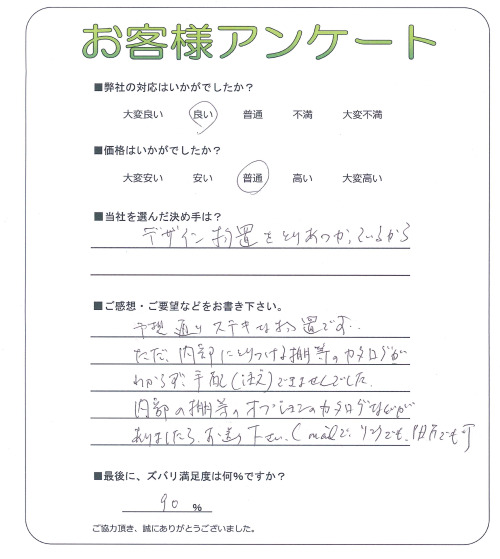 お客様アンケート
■弊社の対応はいかがでしたか？
大変良い 良い 普通 不満 大変不満
■価格はいかがでしたか？
大変安い 安い 普通 高い 大変高い
■当社を選んだ決め手は？
デザイン物置をとりあつかっているから
■ご感想・ご要望などをお書き下さい。
予想通りステキな物置です。
ただ、内部にとりつける棚等のカタログが
わからず、手配(注文)できませんでした。
内部の棚等のオプションのカタログなどが
ありましたら、お送り下さい。(mailで、でも、でも可
■最後に、ズバリ満足度は何%ですか？
90 %
ご協力頂き、誠にありがとうございました。